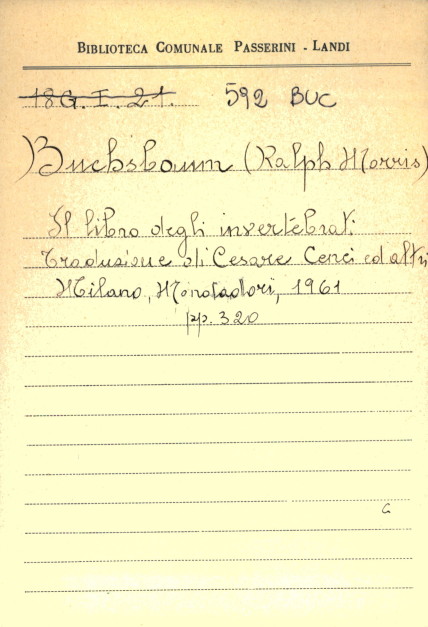 BIBLIOTECA COMUNALE PASSERINI - LANDI
18 G. I. 21. 592 BUC
Buchsbaum (Ralph Morris)
Il libro degli invertebrati
Traduzione di Cesare Cenci ed altri
Milano, Mondadori, 1961
pp. 320
G